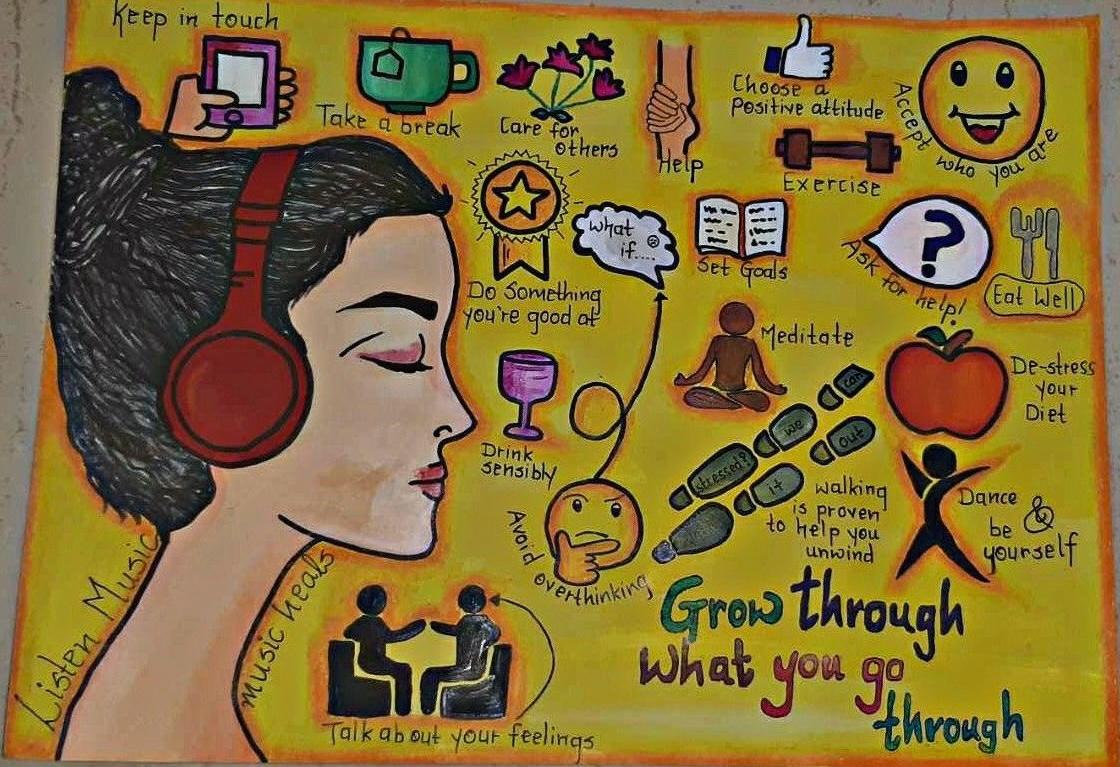 Keep in touch
Take a break
Care for
others
Help
Choose a
Positive attitude
Accept who you are
Exercise
Do Something
you're good at
what
if....
Set Goals
Ask for help!
?
Eat Well
Meditate
De-stress
your
Diet
Drink
sensibly
stressed?
we
can
it
out
walking
is proven
to help you
unwind
Dance &
be
yourself
Avoid overthinking
Listen Music
music heals
Talk about your feelings
Grow through
what you go
through